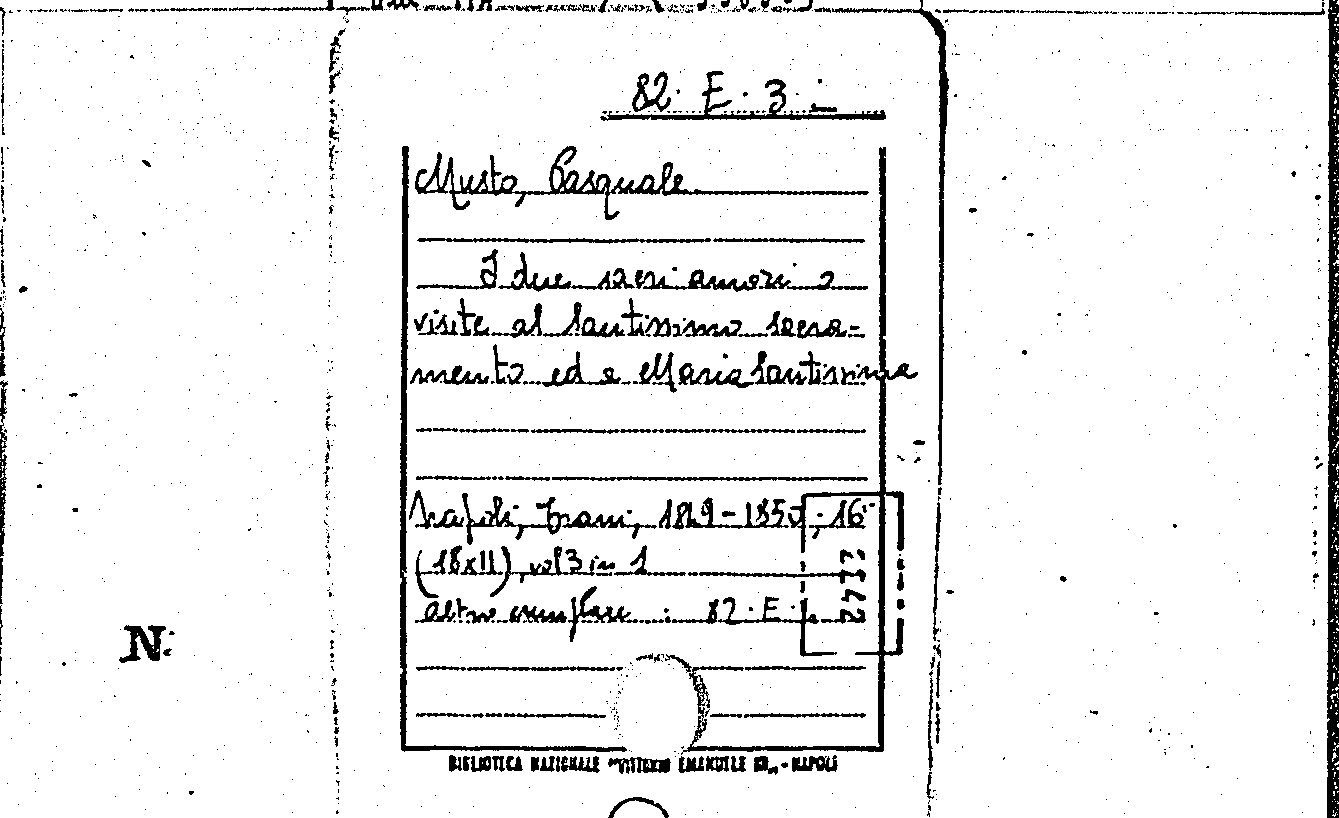 82. E. 3
Musto, Pasquale
I due sacri amori o
visite al Santissimo Sacra-
mento ed a Maria Santissima
Napoli, Trani, 1849-1850, 16°
(18x11), vol 3 in 1
altro esemplare : 82. E.
N.
BIBLIOTECA NAZIONALE "VITTORIO EMANUELE III" - NAPOLI